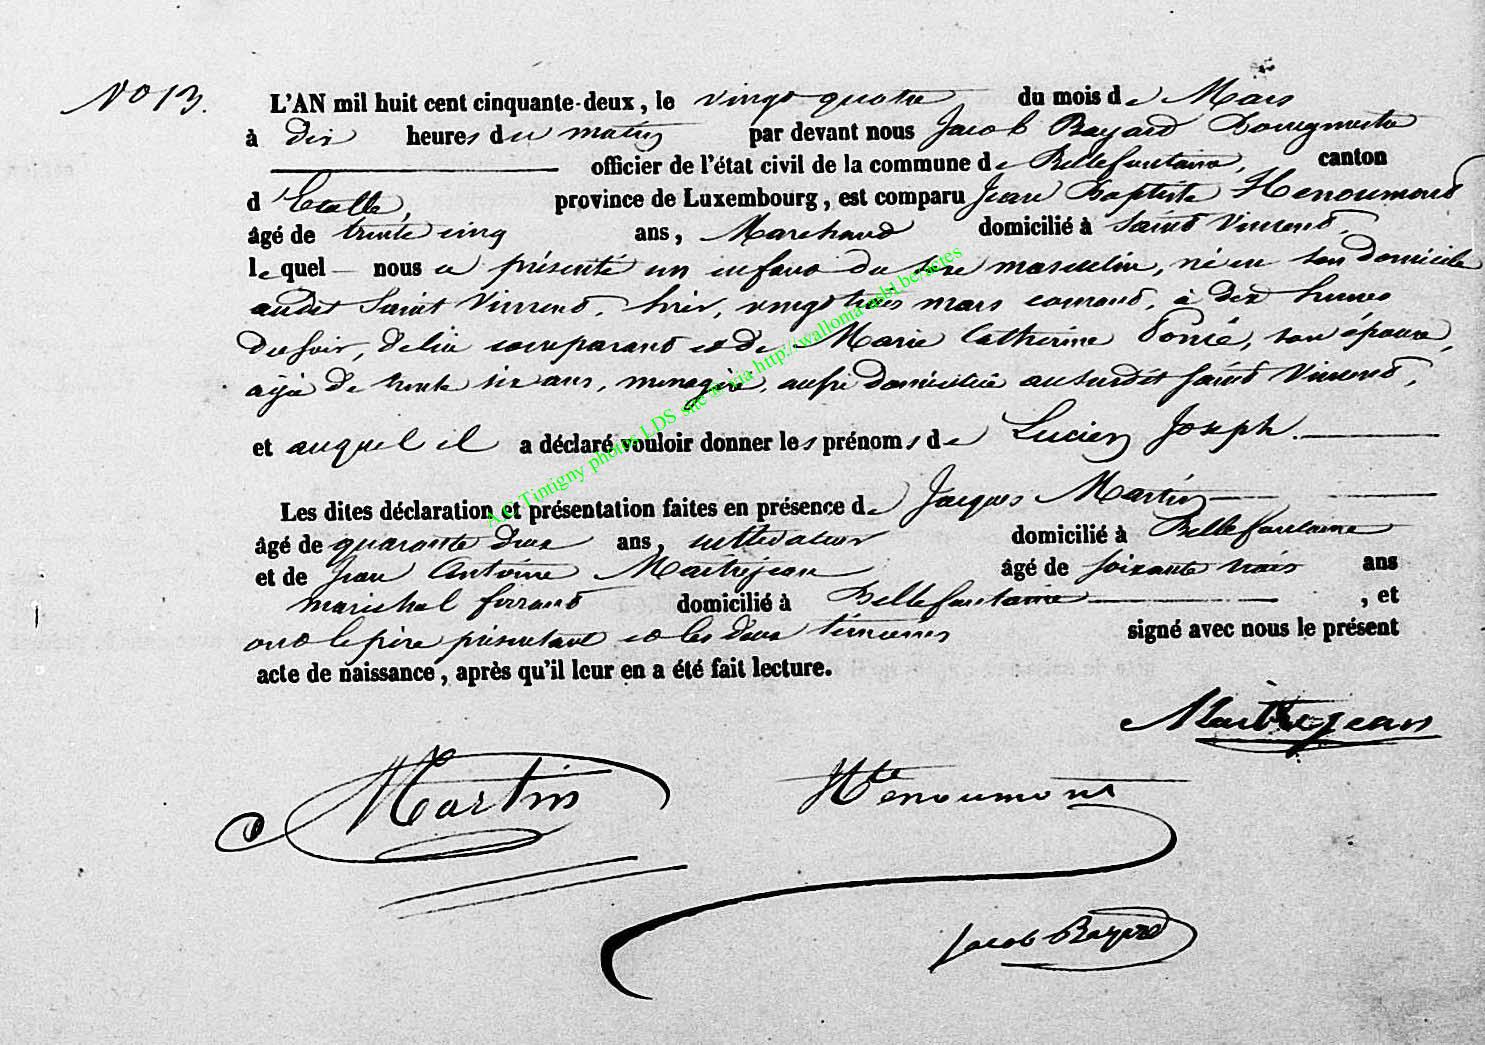 N° 13.
L'AN mil huit cent cinquante-deux, le vingt quatre du mois de Mars
à dix heures du matin par devant nous Jacob Bayard Bourgmestre
officier de l'état civil de la commune de Bellefontaine, canton
d'Etalle, province de Luxembourg, est comparu Jean Baptiste Henoumont
âgé de trente cinq ans, Marchand domicilié à Saint Vincent,
lequel nous a présenté un enfant du sexe masculin, né en son domicile
audit Saint Vincent, hier, vingt trois mars courant, à dix heures
du soir, de lui comparant et de Marie Catherine Poncé, son épouse,
agée de trente six ans, menagère, aussi domiciliée au susdit Saint Vincent,
et auquel il a déclaré vouloir donner les prénoms de Lucien Joseph.
Les dites déclaration et présentation faites en présence de Jacques Martin
âgé de quarante deux ans, cultivateur domicilié à Bellefontaine
et de Jean Antoine Maitrejean âgé de soixante trois ans
marichal ferrant domicilié à Bellefontaine, et
ont le père présentant et les deux témoins signé avec nous le présent
acte de naissance, après qu'il leur en a été fait lecture.
Maitrejean
Martin Henoumont
Jacob Bayard
A.C Tintigny photos LDS site via http://wallonia-asbl.be/actes